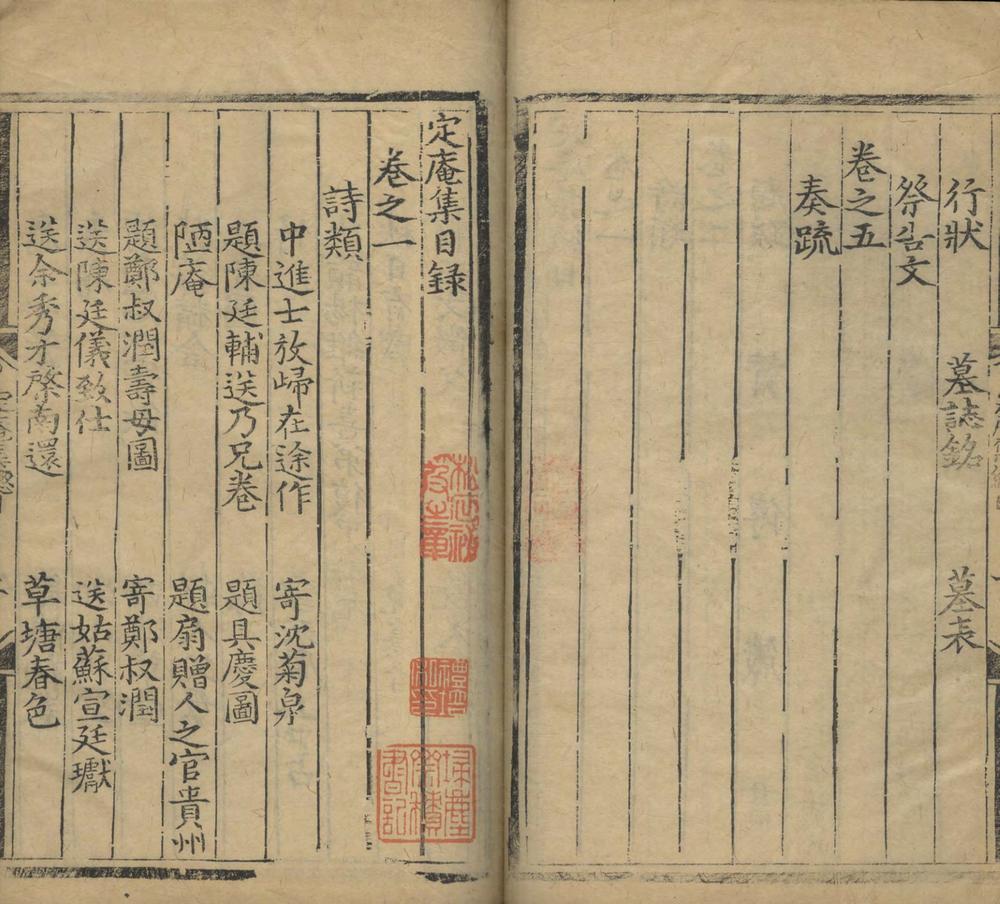 行狀 墓誌銘 墓表
祭告文
卷之五
奏䟽
定庵集目録
卷之一
詩類
中進士放歸在途作 寄沈菊泉
題陳廷輔送乃兄卷 題具慶圖
陋庵 題扇贈人之官貴州
題鄭叔潤壽母圖 寄鄭叔潤
送陳廷儀致仕 送姑蘇宣廷瓛
送余秀才啓南還 草塘春色